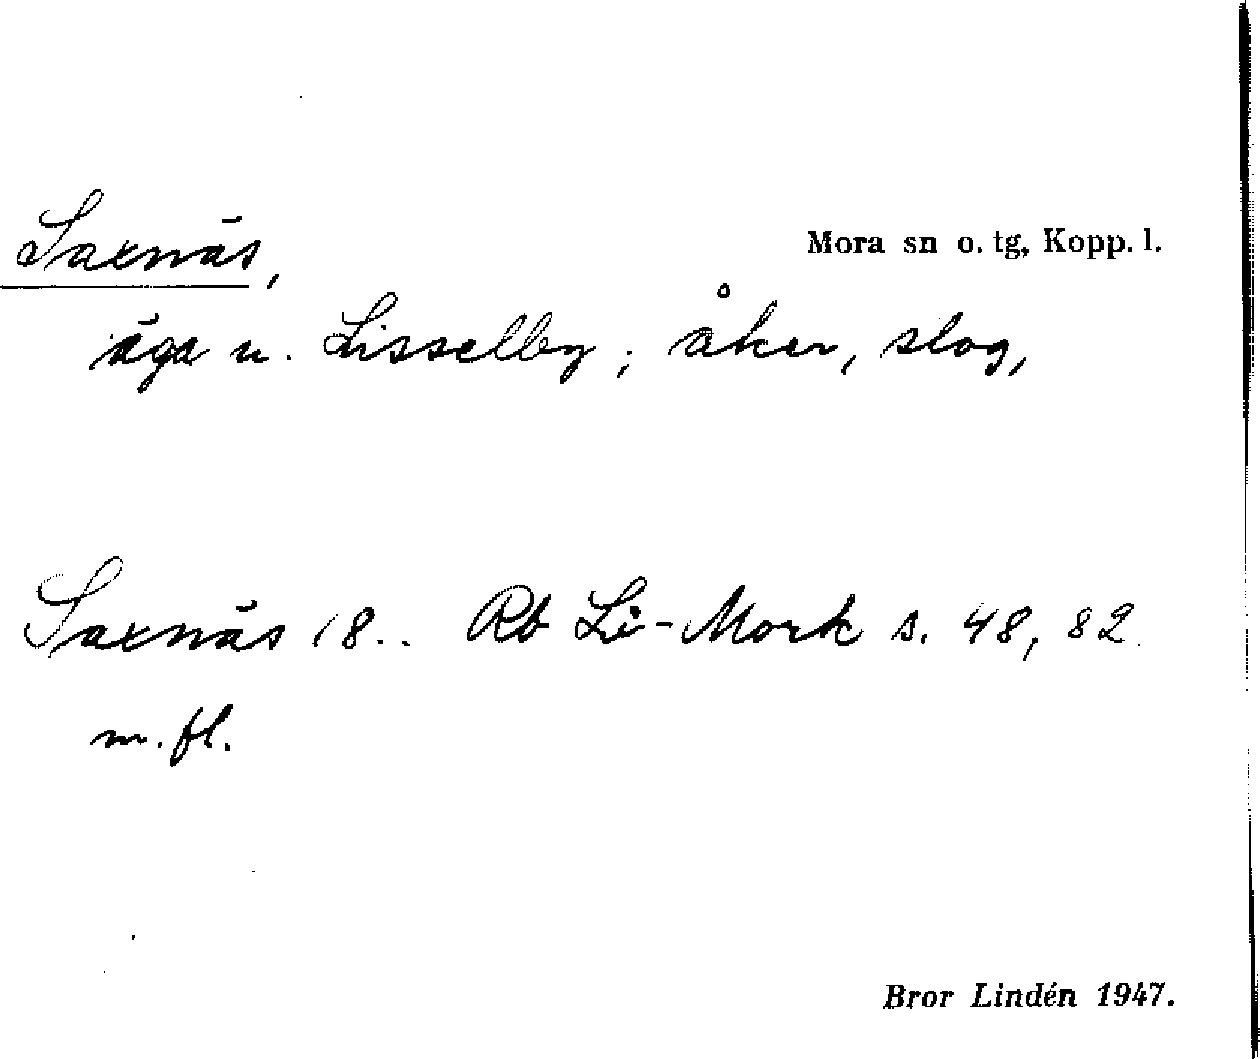 Saxnäs,
Mora sn o. tg, Kopp. l.
äga u. Lisselby; åker, slog,
Saxnäs 18.. Rb Li-Mork s. 48, 82.
m.fl.
Bror Lindén 1947.